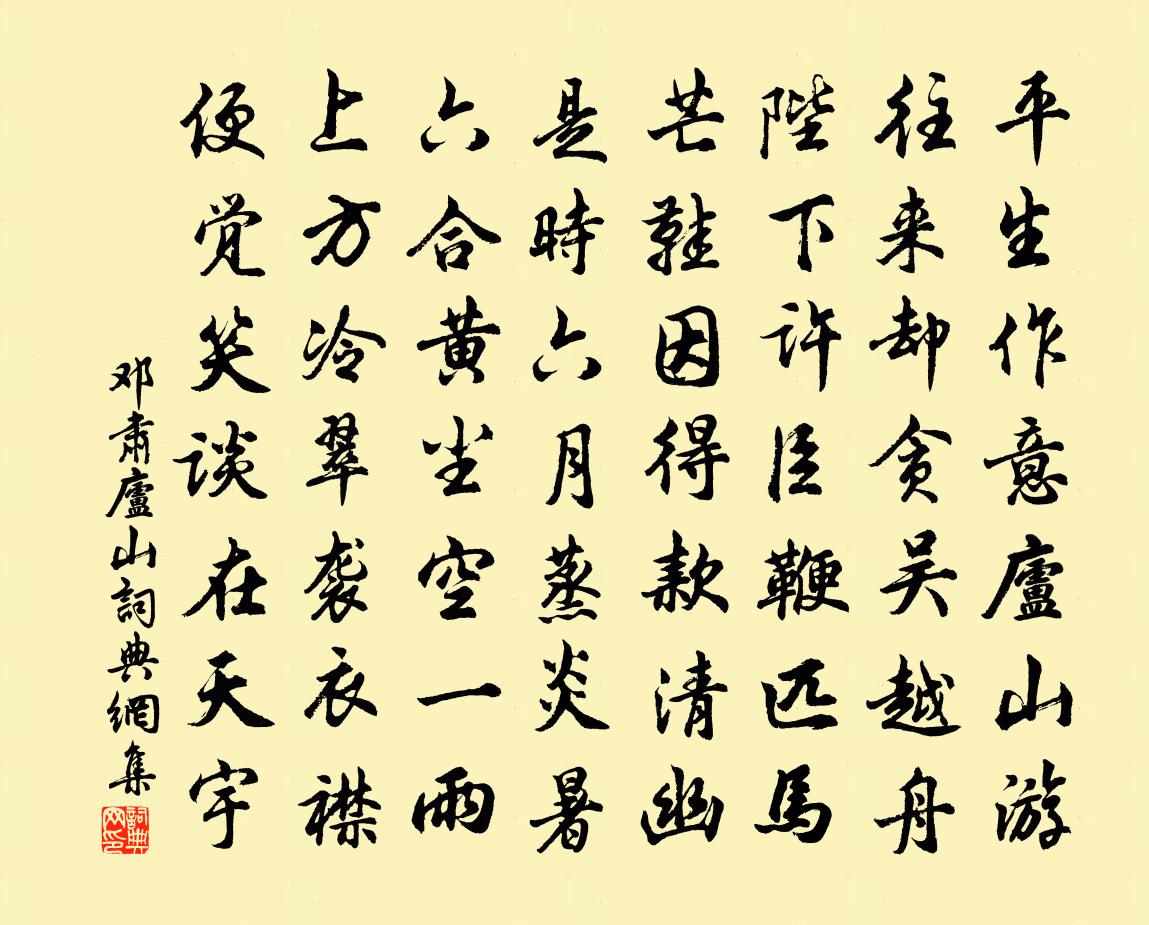 平生作意廬山游
往来却贪吴越舟
陛下许臣鞭匹马
芒鞋因得款清幽
是時六月蒸炎暑
六合黄尘空一雨
上方冷翠袭衣襟
便觉笑谈在天宇
邓肃廬山詞典網集
詞典网印